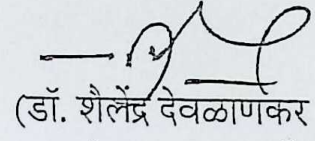 (डॉ. शैलेंद्र देवळाणकर